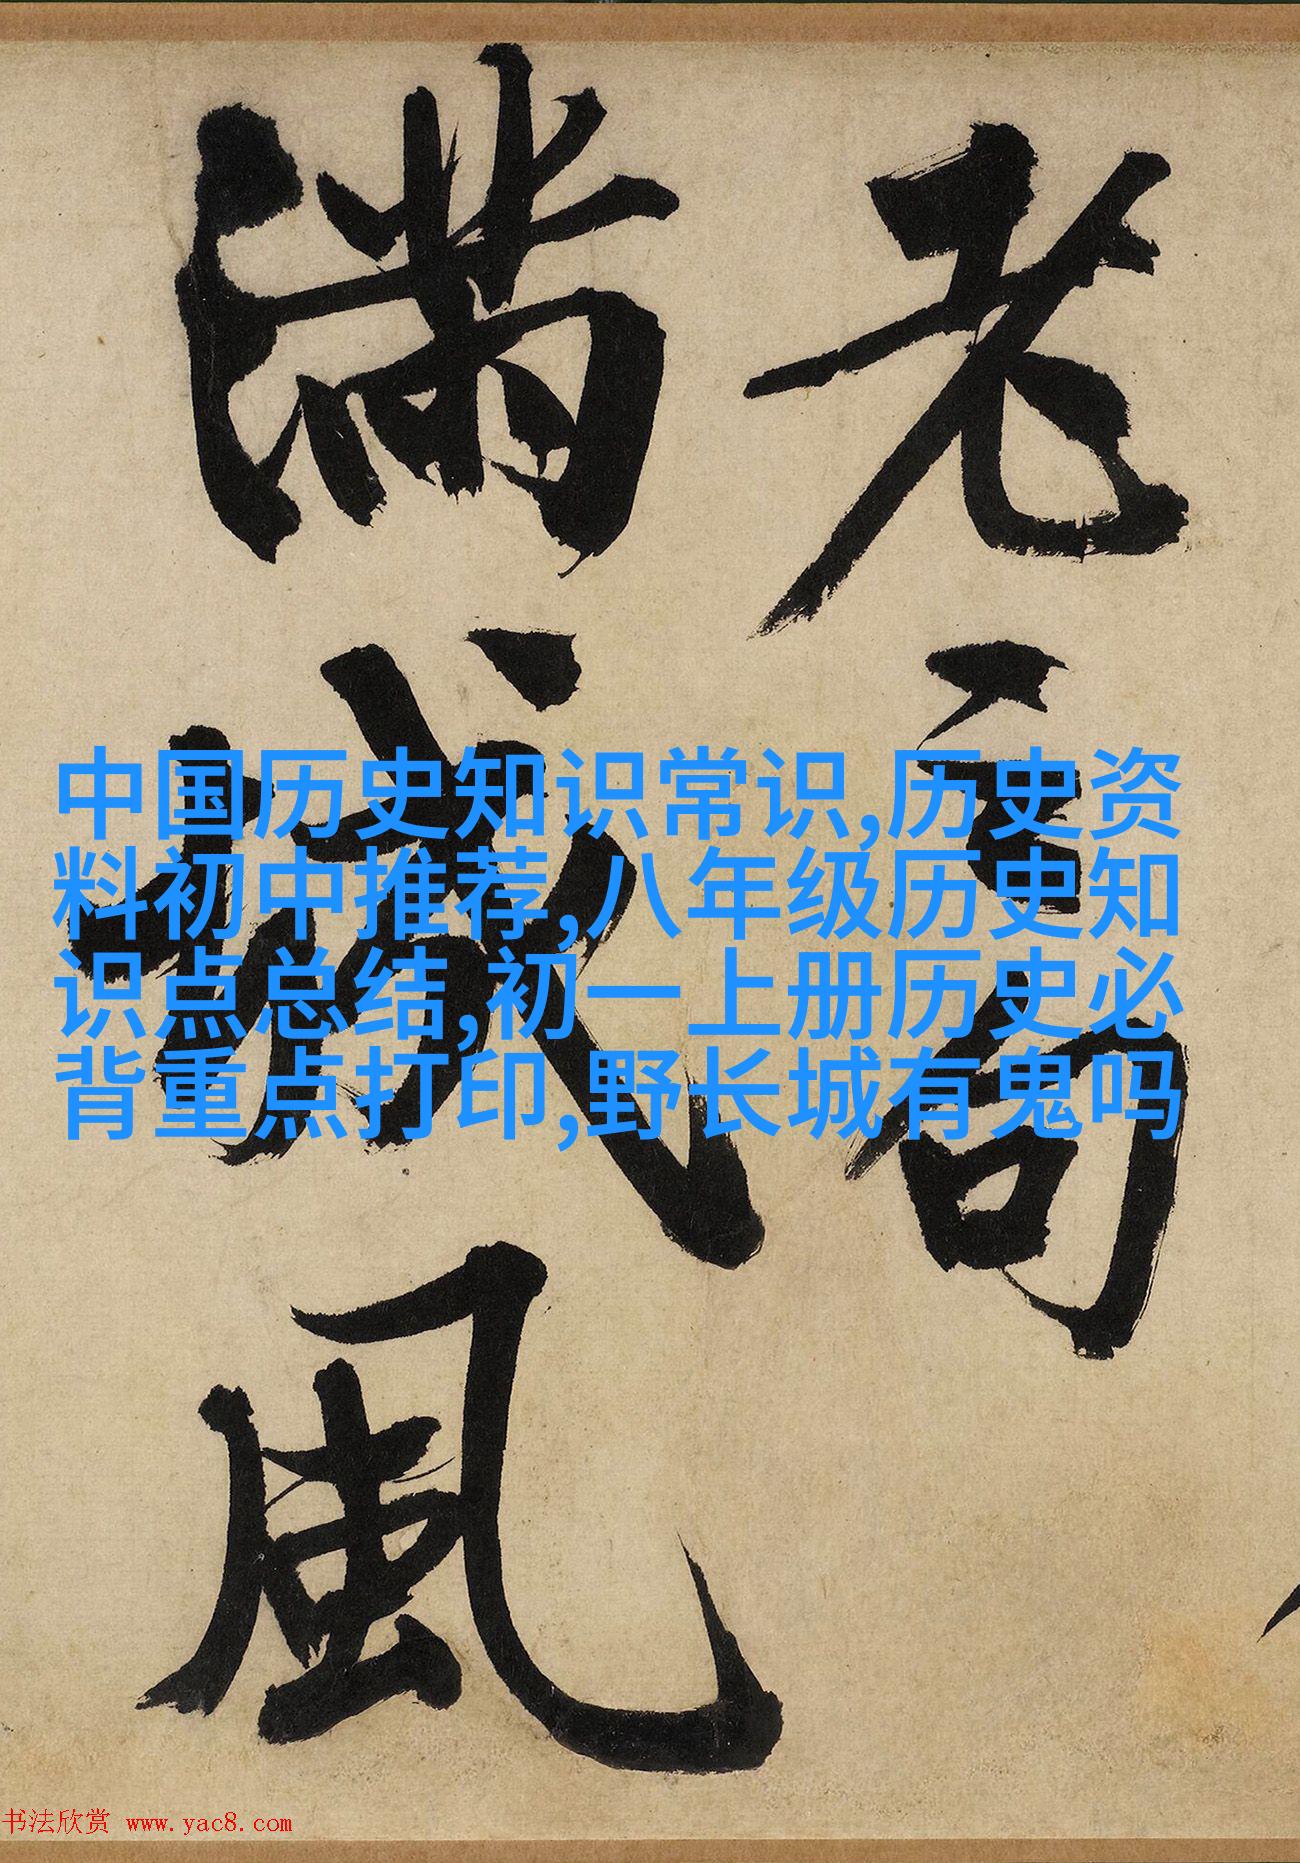 老
滿城風
中国历史知识常识,历史资
料初中推荐,八年级历史知
识点总结,初一上册历史必
背重点打印,野长城有鬼吗
书法欣赏 www.yac8.com